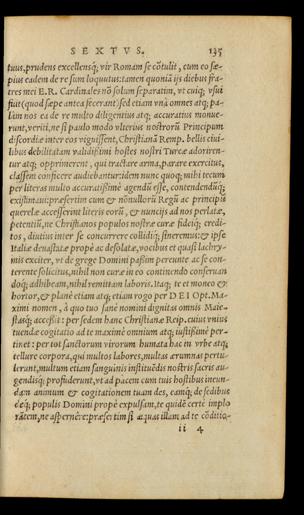 SEXTVS. 135
tuus, prudens excellensq; vir Romam se cōtulit, cum eo sæ-
pius eadem de re sum loquutus: tamen quoniā ijs diebus fra-
tres mei E.R. Cardinales nō solum separatim, vt cuiq; vsui
fuit (quod sæpe antea fecerant) sed etiam vnà omnes atq; pa-
làm nos ea de re multo diligentius atq; accuratius monue-
runt, veriti, ne si paulo modo vlterius nostrorū Principum
discordiæ inter eos viguissent, Christianā Remp. bellis ciui-
libus debilitatam validissimi hostes nostri Turcæ adoriren-
tur atq; opprimerent, qui tractare arma, parare exercitus,
classem conficere audiebantur: idem nunc quoq; mihi tecum
per literas multo accuratissimè agendū esse, contendendūq;
existimaui: præsertim cum & nōnullorū Regū ac principū
querelæ accesserint literis eorū, & nuncijs ad nos perlatæ,
petentiū, ne Christianos populos nostræ curæ fideiq; credi-
tos, diutius inter se concurrere collidiq; sineremus: & ipsæ
Italiæ denastatæ propè ac desolatæ, voces et quasi lachry-
mis exciter, vt de grege Domini passim pereunte ac se con-
terente solicitus, nihil non curæ in eo continendo conseruan
doq; adhibeam, nihil remittam laboris. Itaq; te et moneo &
hortor, & planè etiam atq; etiam rogo per DEI Opt. Ma-
ximi nomen, à quo tuo sanè nomini dignitas omnis Maie-
stasq; accessit: per sedem hanc Christianæ Reip. cuius vnius
tuendæ cogitatio ad te maximè omnium atq; iustissimè per-
tinet: per tot sanctorum virorum humata hac in vrbe atq;
tellure corpora, qui multos labores, multas ærumnas pertu-
lerunt, multum etiam sanguinis instituēdis nostris sacris au-
gendisq; profuderunt, vt ad pacem cum tuis hostibus ineun-
dam animum & cogitationem tuam des, eamq; de sedibus
deq; populis Domini propè expulsam, te quidē certè implo
rātem, ne asperneris: præsertim si æquas illam ad te cōditio-
ii 4